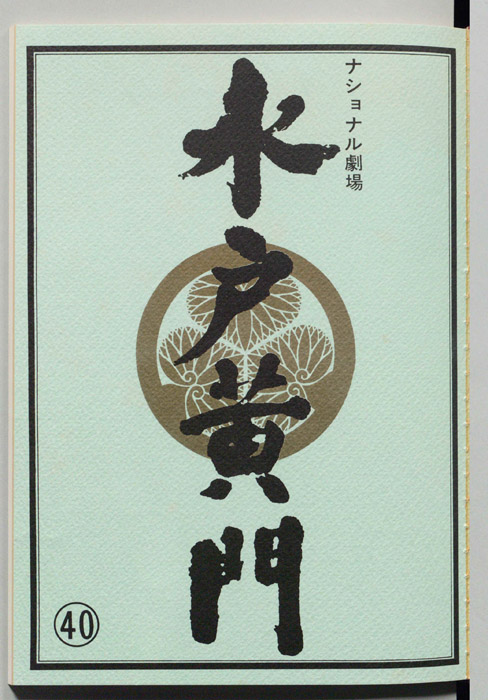 ナショナル劇場
水戸黄門
40